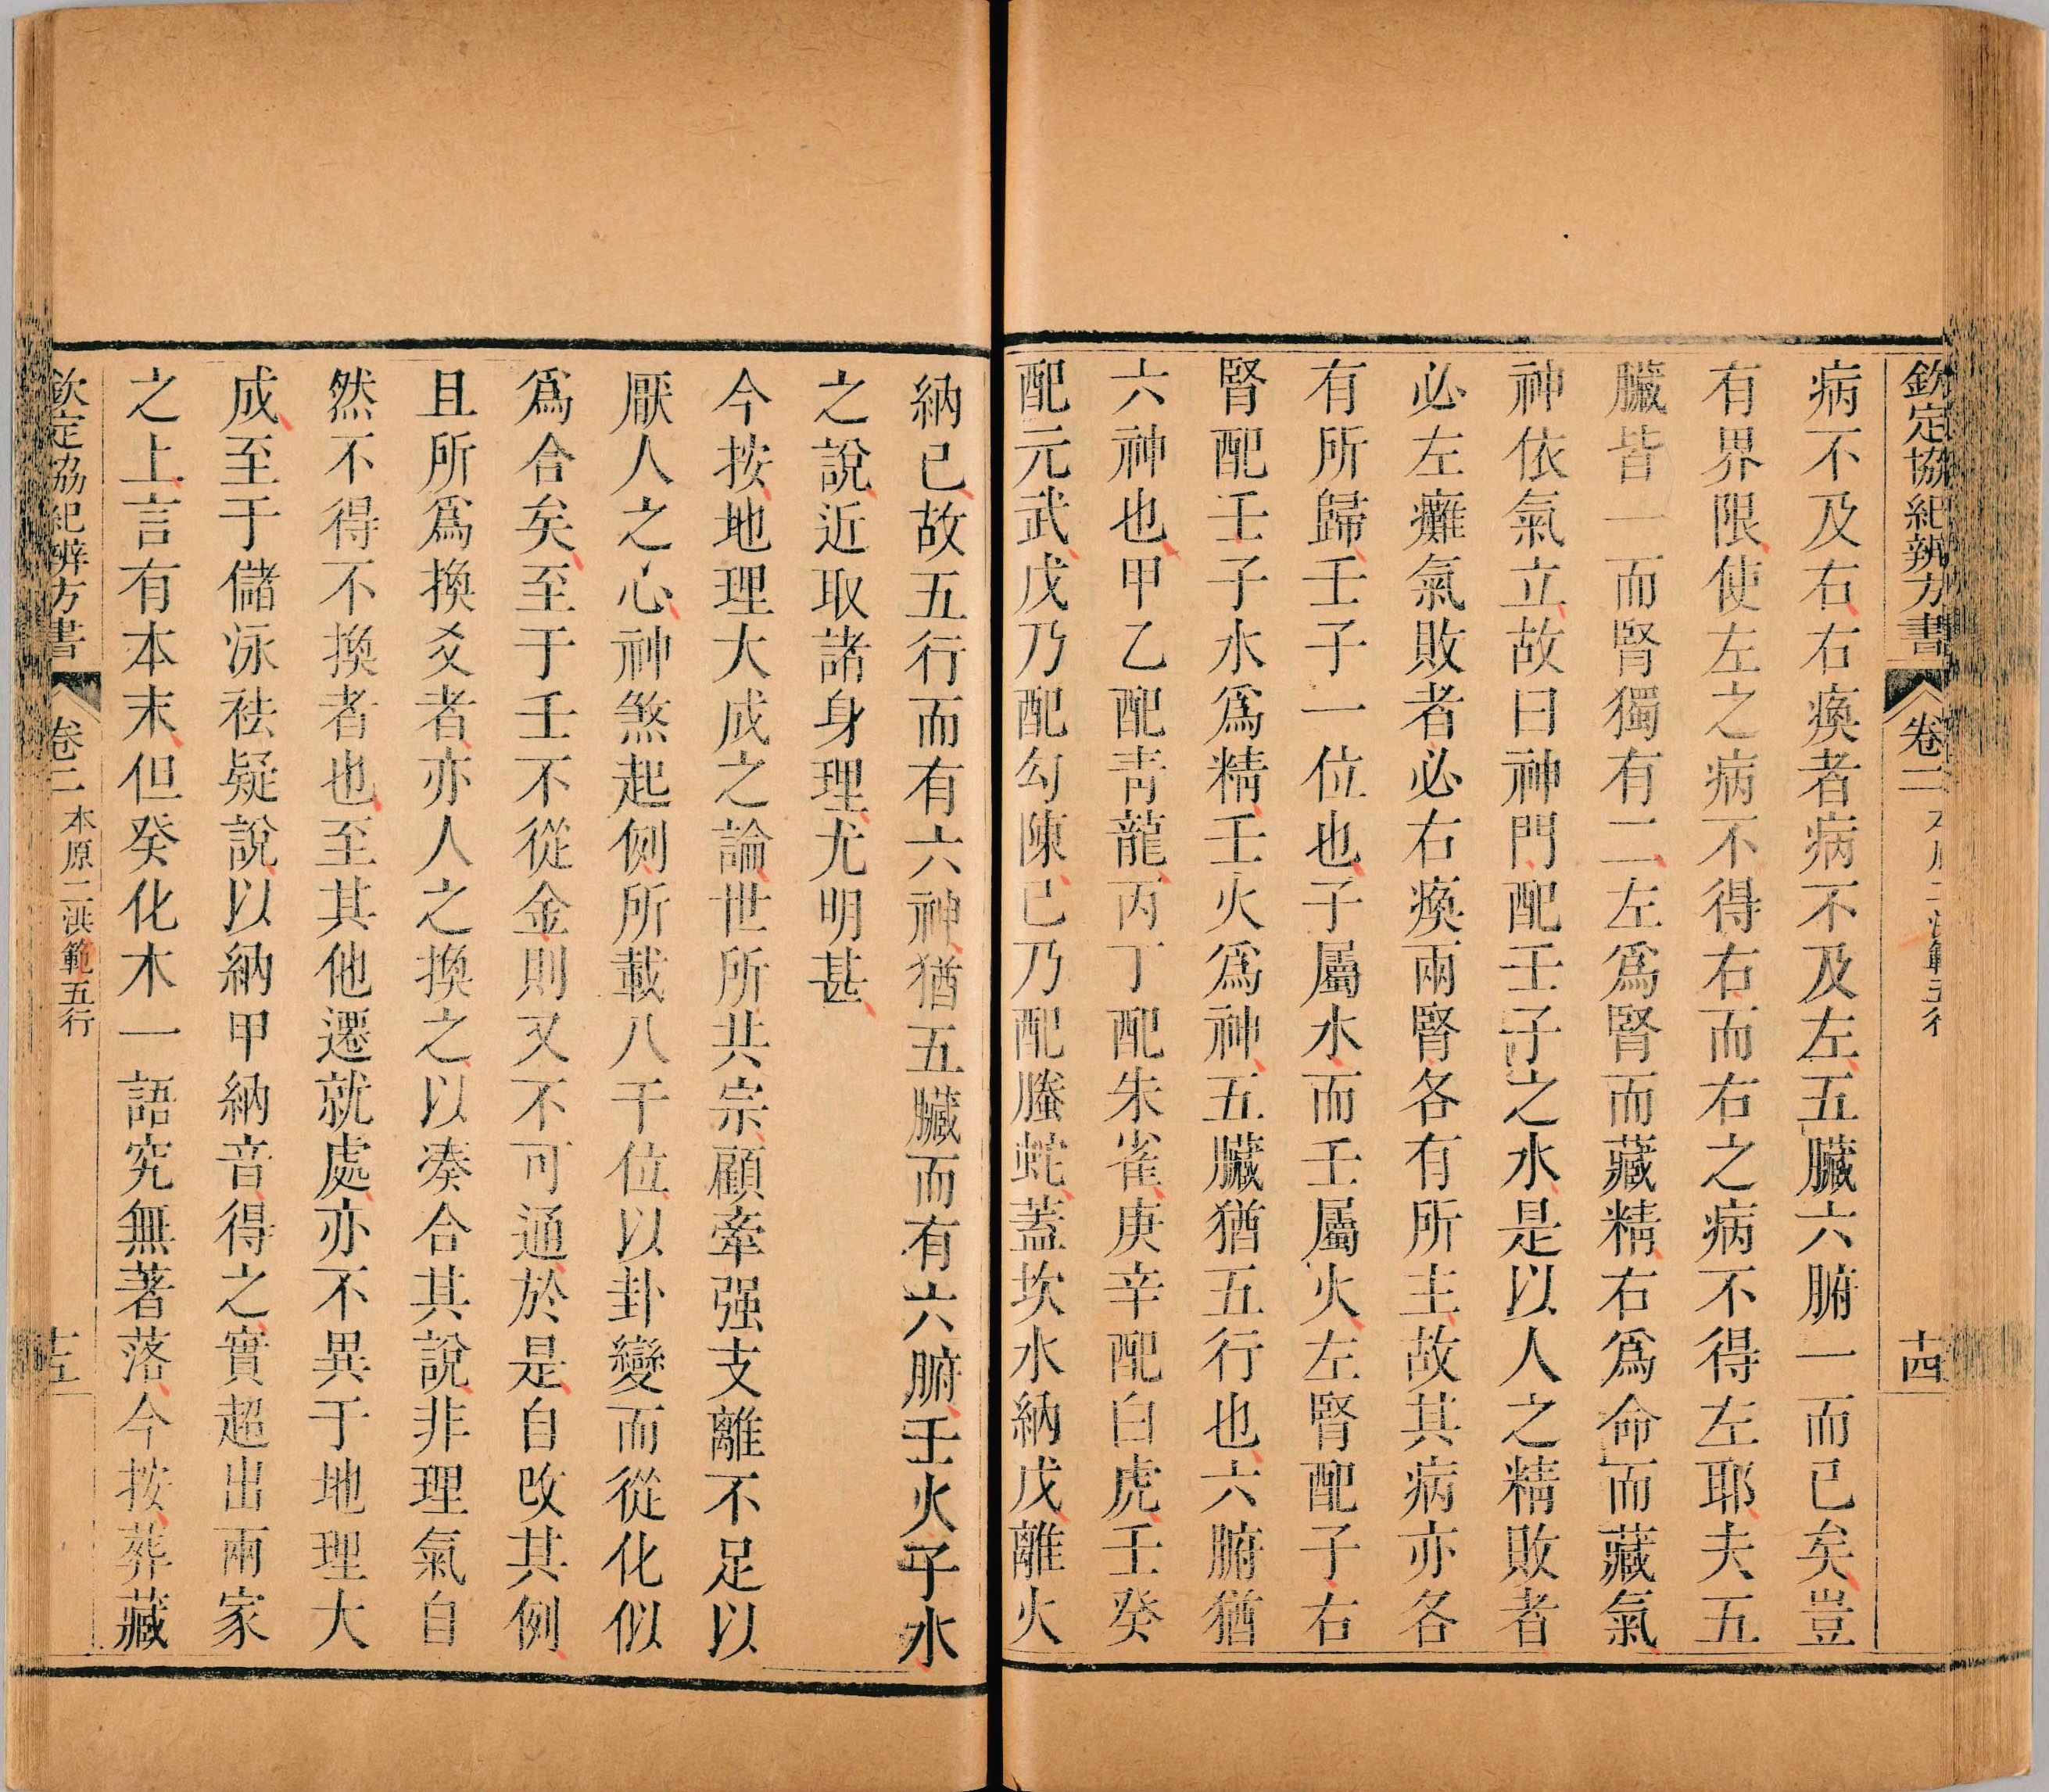 欽定協紀辨方書 卷二 本原二 洪範五行 十四
病不及右右瘓者病不及左五臟六腑一而已矣豈
有界限使左之病不得右而右之病不得左耶夫五
臟皆一而腎獨有二左爲腎而藏精右爲命而藏氣
神依氣立故曰神門配壬子之水是以人之精敗者
必左癱氣敗者必右瘓兩腎各有所主故其病亦各
有所歸壬子一位也子屬水而壬屬火左腎配子右
腎配壬子水爲精壬火爲神五臟猶五行也六腑猶
六神也甲乙配靑龍丙丁配朱雀庚辛配白虎壬癸
配元武戊乃配勾陳已乃配螣蛇蓋坎水納戊離火
納已故五行而有六神猶五臟而有六腑壬火子水
之說近取諸身理尤明甚
今按地理大成之論世所共宗顧牽强支離不足以
厭人之心神煞起例所載八干位以卦變而從化似
爲合矣至于壬不從金則又不可通於是自改其例
且所爲換爻者亦人之換之以凑合其說非理氣自
然不得不換者也至其他遷就處亦不異于地理大
成至于儲泳祛疑說以納甲納音得之實超出兩家
之上言有本末但癸化木一語究無著落今按葬藏
欽定協紀辨方書 卷二 本原二 洪範五行 十五